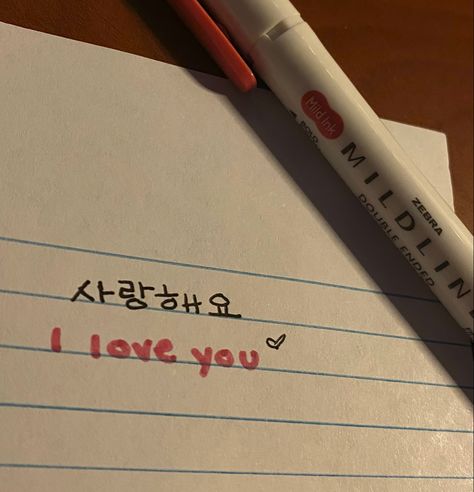 Mild Ink
BOLD
MILDLIN
ZEBRA
DOUBLE ENDED
사랑해요
I love you ♡